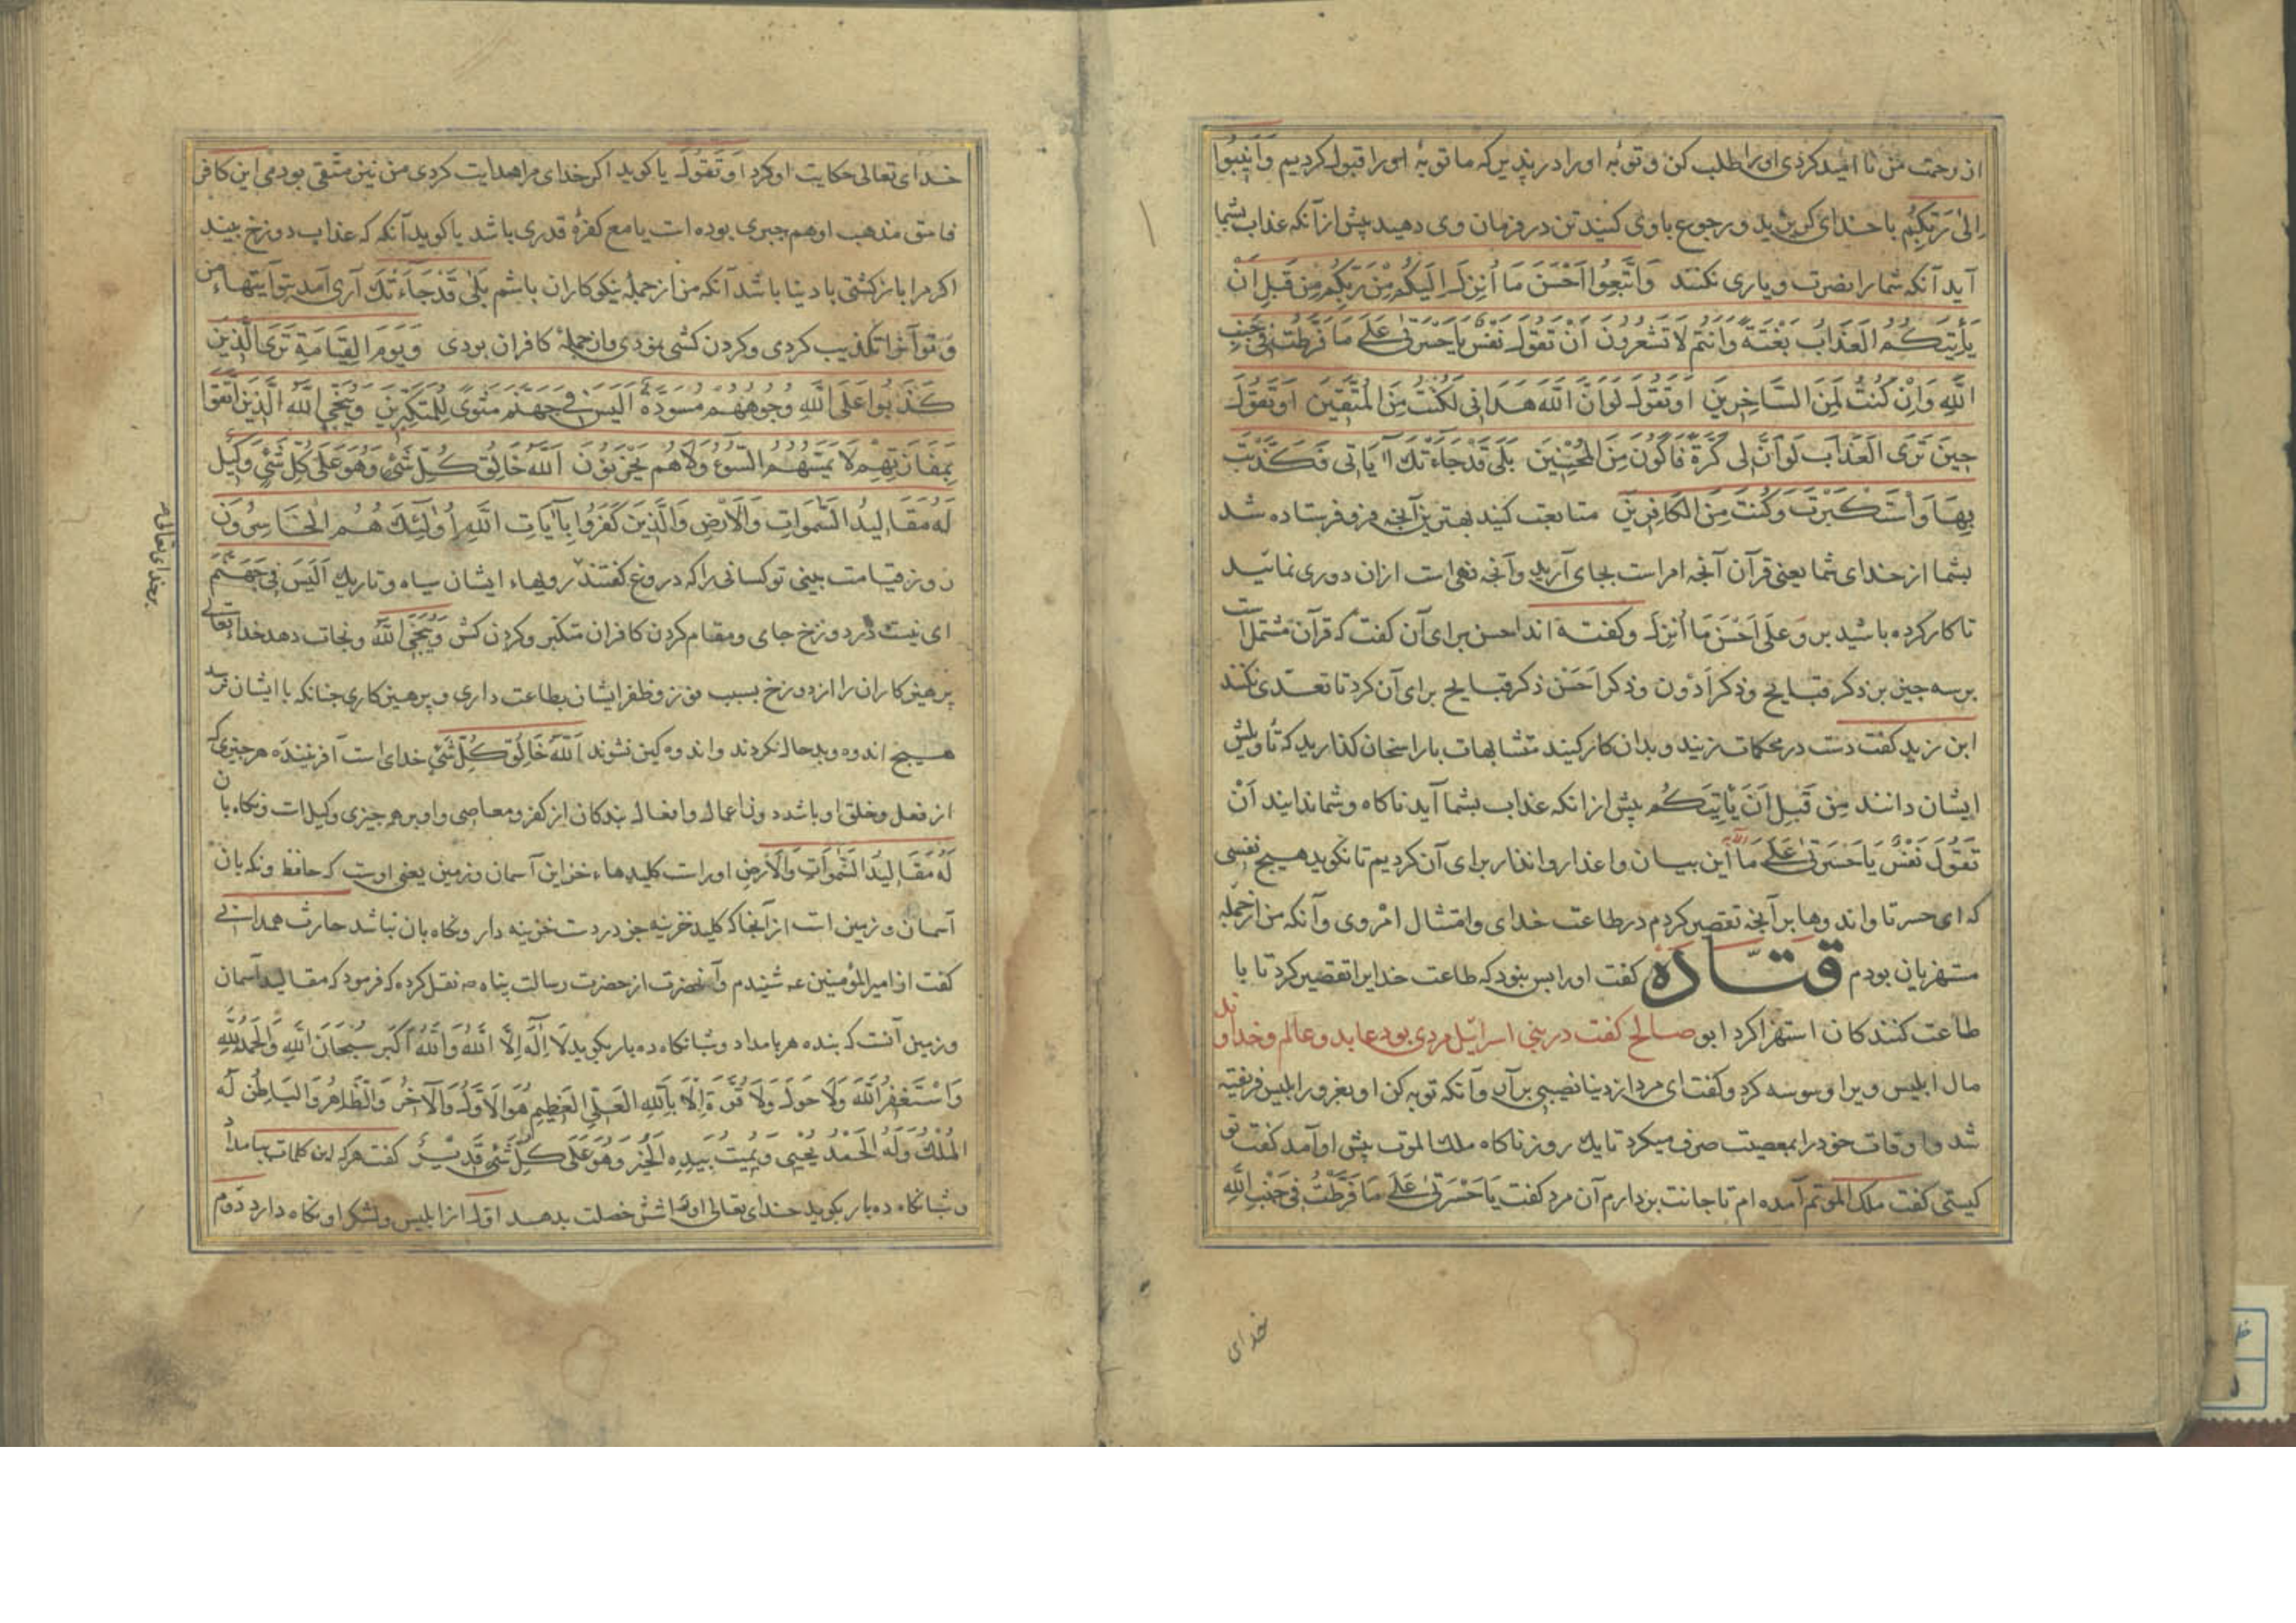 از رحمت من نا امید کردی او را طلب کن و توبه او را در پذیر که ما توبه او را قبول کردیم وَاَنِیبُوا
اِلیٰ رَبِّکُم با خدای کریزید و رجوع با وی کنید تن در فرمان وی دهید پیش از آنکه عذاب بشما
آید آنکه شما را نصرت و یاری نکنند وَاتَّبِعُوا اَحْسَنَ مَا اُنْزِلَ اِلَیکُم مِنْ رَبِّکُم مِن قَبلِ اَنْ
یَأتِیَکُمُ العَذَابُ بَغْتَةً وَاَنْتُم لَا تَشعُرُونَ اَنْ تَقُولَ نَفْسٌ یَا حَسْرَتیٰ عَلیٰ مَا فَرَّطتُ فی جَنبِ
اللّٰهِ وَاِنْ کُنْتُ لَمِنَ السَّاخِرِینَ اَوْ تَقُولَ لَوْ اَنَّ اللّٰهَ هَدَانی لَکُنْتُ مِنَ المُتَّقِینَ اَوْ تَقُولَ
حِینَ تَرَی العَذَابَ لَوْ اَنَّ لی کَرَّةً فَاَکُونَ مِنَ المُحْسِنِینَ بَلیٰ قَدْ جَاءَتْكَ آیَاتی فَکَذَّبْتَ
بِهَا وَاسْتَکْبَرْتَ وَکُنْتَ مِنَ الکَافِرِینَ متابعت کنید بهترین آنچه فرو فرستاده شد
بشما از خدای شما یعنی قرآن آنچه امر است بجای آرید و آنچه نهی است ازان دوری نمائید
تا کار کرده باشید بر وَ عَلیٰ اَحْسَنَ مَا اُنْزِلَ و کفته اند احسن برای آن کفت که قرآن مشتمل است
بر سه چیز بر ذکر قبایح و ذکر اَدْوَن و ذکر اَحْسَن ذکر قبایح برای آن کرد تا تعدّی نکنند
ابن زید کفت دست در محکمات زنید و بدان کار کنید متشابهات با راسخان کذارید که تأویلش
ایشان دانند مِن قَبلِ اَنْ یَأتِیَکُم پیش از انکه عذاب بشما آید ناکاه و شما ندانید اَنْ
تَقُولَ نَفْسٌ یَا حَسْرَتیٰ عَلیٰ مَا این بیان و اعذار و انذار برای آن کردیم تا نکوید هیچ نفسی
که ای حسرتا و اندوها بر آنچه تقصیر کردم در طاعت خدای و امتثال امر وی و آنکه من از جمله
مستهزیان بودم قتاده کفت او را بس نبود که طاعت خدایرا تقصیر کرد تا با
طاعت کنندکان استهزا کرد ابو صالح کفت در بنی اسرائیل مردی بود عابد و عالم و خداوند
مال ابلیس ویرا وسوسه کرد و کفت ای مرد از دنیا نصیبی بر آر و آنکه توبه کن او بغرور ابلیس فریفته
شد و اوقات خود را بمعصیت صرف میکرد تا یك روز ناکاه ملك الموت پیش او آمد کفت تو
کیستی کفت ملك الموتم آمده ام تا جانت بردارم آن مرد کفت یَا حَسْرَتیٰ عَلیٰ مَا فَرَّطْتُ فی جَنْبِ اللّٰهِ
خدای
خدای تعالی حکایت او کرد اَوْ تَقُولَ یا کوید اکر خدای مرا هدایت کردی من نیز متّقی بودمی این کافر
موافق مذهب او هم جبری بوده است یا مع کفره قدری باشد یا کوید آنکه که عذاب دوزخ بیند
اکر مرا بازکشتی با دنیا باشد آنکه من از جمله نیکوکاران باشم بَلیٰ قَدْ جَاءَتْكَ آری آمد بتو آیتهاء من
و تو آنرا تکذیب کردی و کردن کشی نمودی و از جمله کافران بودی وَیَوْمَ القِیَامَةِ تَرَی الَّذِینَ
کَذَبُوا عَلَی اللّٰهِ وُجُوهُهُم مُسْوَدَّةٌ اَلَیْسَ فی جَهَنَّمَ مَثْوًی لِلْمُتَکَبِّرِینَ وَیُنَجِّی اللّٰهُ الَّذِینَ اتَّقَوْا
بِمَفَازَتِهِمْ لَا یَمَسُّهُمُ السُّوءُ وَلَا هُمْ یَحْزَنُونَ اَللّٰهُ خَالِقُ کُلِّ شَیْءٍ وَهُوَ عَلیٰ کُلِّ شَیْءٍ وَکِیل
لَهُ مَقَالِیدُ السَّمٰوَاتِ وَالْاَرْضِ وَالَّذِینَ کَفَرُوا بِآیَاتِ اللّٰهِ اُولٰئِكَ هُمُ الْخَاسِرُونَ
روز قیامت بینی تو کسانی را که دروغ کفتند رویهاء ایشان سیاه و تاریك اَلَیْسَ فی جَهَنَّمَ
ای نیست در دوزخ جای و مقام کردن کافران متکبر و کردن کش وَیُنَجِّی اللّٰهُ و نجات دهد خداء تعالی
پرهیزکاران را از دوزخ بسبب فوز و ظفر ایشان بطاعت داری و پرهیزکاری چنانکه با ایشان نرسد
هیچ اندوه و بدحال نکردند و اندوه کین نشوند اَللّٰهُ خَالِقُ کُلِّ شَیْءٍ خدای است آفریننده هر چیزی که
از فعل و خلق او باشد دون اعمال و افعال بندکان از کفر و معاصی و او بر هر چیزی وکیلست و نکاه بان
لَهُ مَقَالِیدُ السَّمٰوَاتِ وَالْاَرْضِ او راست کلیدهاء خزاین آسمان و زمین یعنی اوست که حافظ و نکه بان
آسمان و زمین است از آنجا که کلید خزینه جز در دست خزینه دار و نکاه بان نباشد حارث همدانی
کفت از امیر المؤمنین عه شنیدم و آنحضرت از حضرت رسالت پناه صه نقل کرده که فرمود که مقالید آسمان
و زمین آنست که بنده هر بامداد و شبانکاه ده بار بکوید لَا اِلٰهَ اِلَّا اللّٰهُ وَاللّٰهُ اَکْبَرُ سُبْحَانَ اللّٰهِ وَالْحَمْدُ لِلّٰهِ
وَاَسْتَغْفِرُ اللّٰهَ وَلَا حَوْلَ وَلَا قُوَّةَ اِلَّا بِاللّٰهِ الْعَلِیِّ الْعَظِیمِ هُوَ الْاَوَّلُ وَالْآخِرُ وَالظَّاهِرُ وَالْبَاطِنُ لَهُ
الْمُلْكُ وَلَهُ الْحَمْدُ یُحْیِی وَیُمِیتُ بِیَدِهِ الْخَیْرُ وَهُوَ عَلیٰ کُلِّ شَیْءٍ قَدِیْرٌ کفت هر که این کلمات بامداد
و شبانکاه ده بار بکوید خدای تعالی او را شش خصلت بدهد اوّل از ابلیس و لشکر او نکاه دارد دوّم